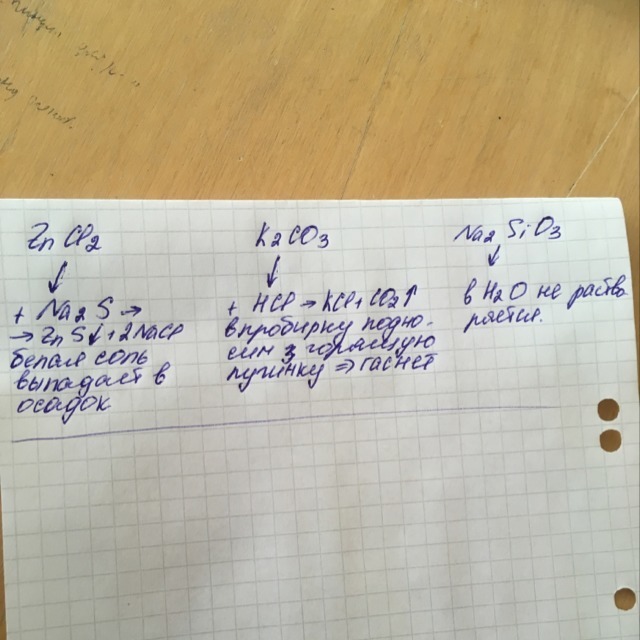 ZnCl2
+ Na2S →
→ ZnS↓ + 2NaCl
белая соль
выпадает в
осадок
K2CO3
+ HCl → KCl + CO2↑
в пробирку подно-
сим горящую
лучинку ⇒ гаснет
Na2SiO3
в H2O не раство
ряется.